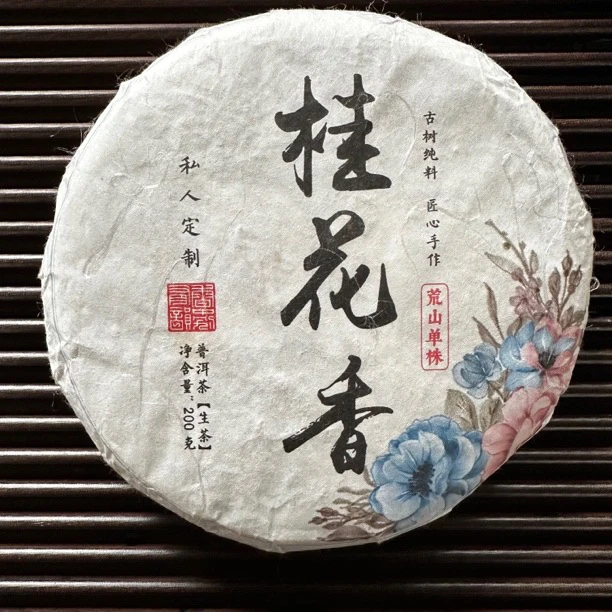 桂花香
古树纯料 匠心手作
荒山单株
私人定制
普洱茶【生茶】
净含量:200克